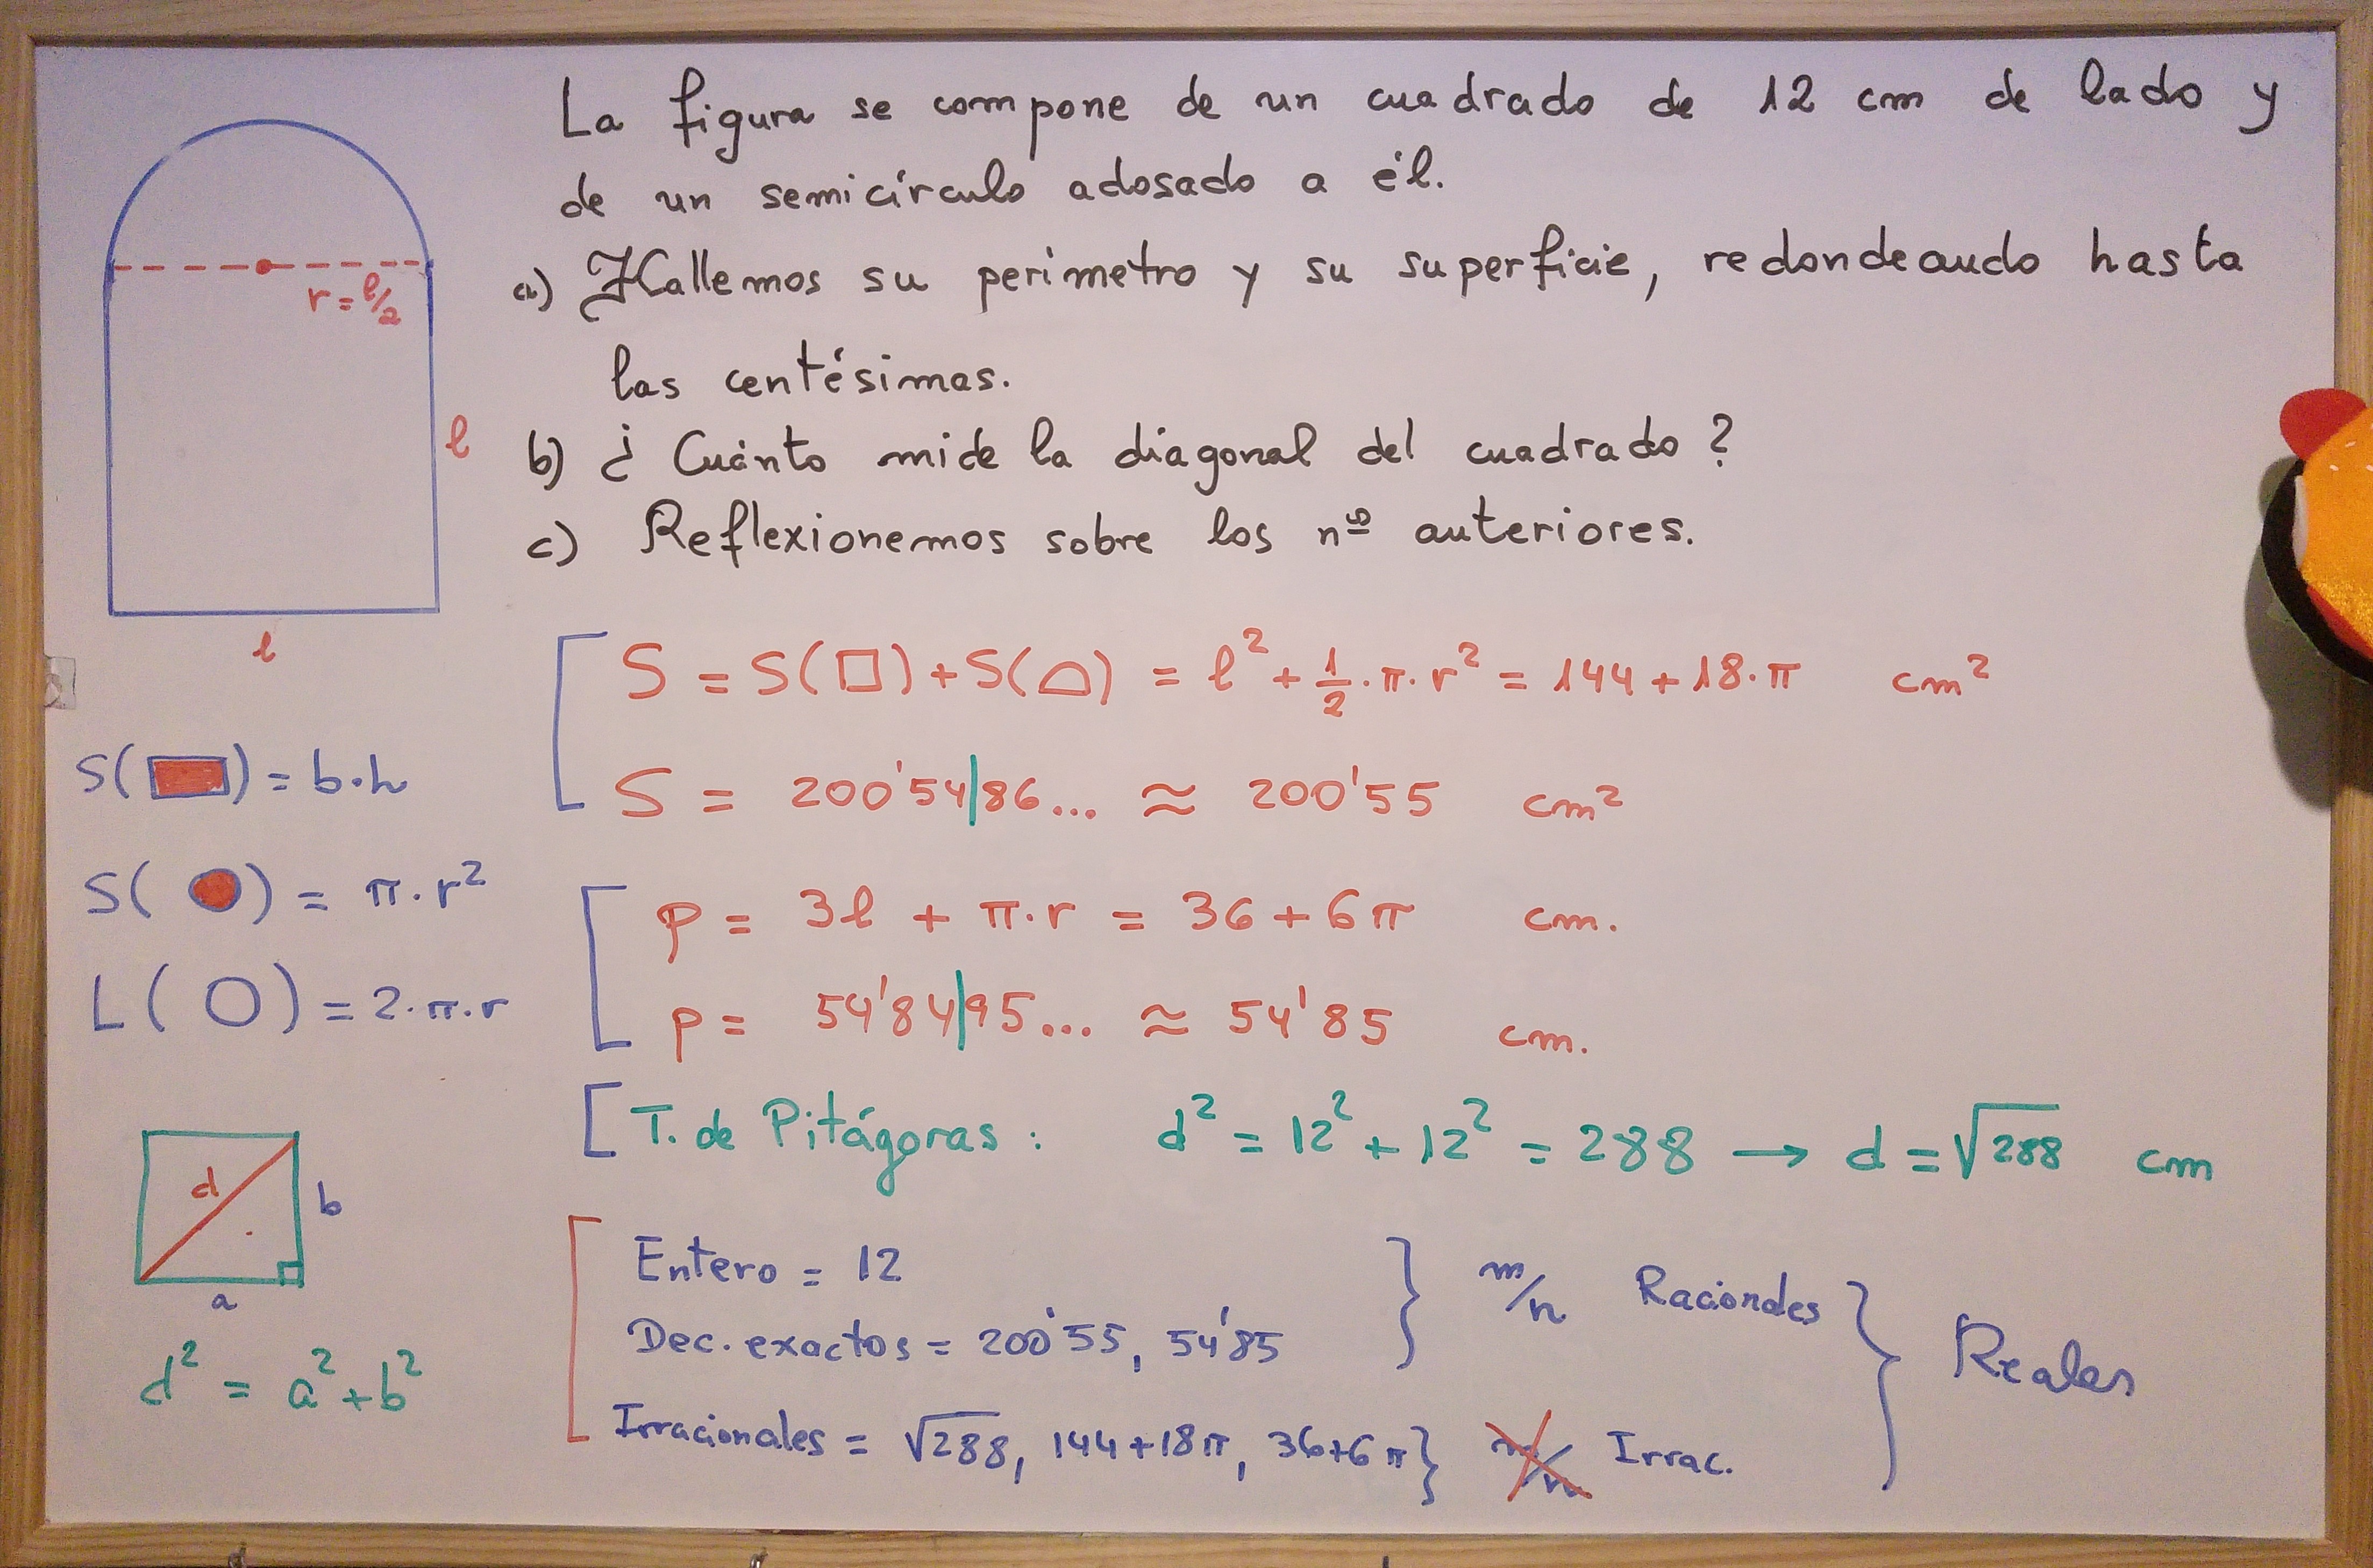 La figura se compone de un cuadrado de 12 cm de lado y
de un semicírculo adosado a él.
a) Hallemos su perímetro y su superficie, redondeando hasta
las centésimas.
b) ¿Cuánto mide la diagonal del cuadrado?
c) Reflexionemos sobre los nºs anteriores.
r = l/2
l
l
S(▭) = b·h
S(●) = π·r²
L(○) = 2·π·r
d
b
a
d² = a² + b²
S = S(□) + S(⌓) = l² + 1/2·π·r² = 144 + 18·π cm²
S = 200'54|86... ≈ 200'55 cm²
p = 3l + π·r = 36 + 6π cm.
p = 54'84|95... ≈ 54'85 cm.
T. de Pitágoras: d² = 12² + 12² = 288 → d = √288 cm
Entero = 12
Dec. exactos = 200'55, 54'85 } m/n Racionales
Irracionales = √288, 144+18π, 36+6π } m/n Irrac.
} Reales